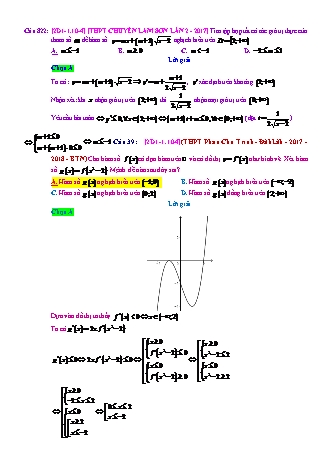 Câu 822: [2D1-1.10-4] [THPT CHUYÊN LAM SƠN LẦN 2 - 2017] Tìm tập hợp tất cả các giá trị thực của
tham số m để hàm số y = mx + (m+1)√(x−2) nghịch biến trên D = [2;+∞).
A. m ≤ −1. B. m ≥ 0. C. m < −1. D. −2 ≤ m ≤ 1
Lời giải
Chọn A
Ta có : y = mx + (m+1)√(x−2) ⇒ y' = m + (m+1)/(2√(x−2)), y' xác định trên khoảng (2;+∞)
Nhận xét: khi x nhận giá trị trên (2;+∞) thì 1/(2√(x−2)) nhận mọi giá trị trên (0;+∞)
Yêu cầu bài toán ⇔ y' ≤ 0, ∀x ∈ (2;+∞) ⇔ (m+1)t + m ≤ 0, ∀t ∈ (0;+∞) (đặt t = 1/(2√(x−2)))
⇔ m ≤ −1 Câu 39: [2D1-1.10-4] (THPT Phan Chu Trinh - Đắk Lắk - 2017 -
2018 - BTN) Cho hàm số f(x) có đạo hàm trên ℝ và có đồ thị y = f'(x) như hình vẽ. Xét hàm
số g(x) = f(x²−2). Mệnh đề nào sau đây sai?
A. Hàm số g(x) nghịch biến trên (−1;0). B. Hàm số g(x) nghịch biến trên (−∞;−2).
C. Hàm số g(x) nghịch biến trên (0;2). D. Hàm số g(x) đồng biến trên (2;+∞).
Lời giải
Chọn A
Dựa vào đồ thị ta thấy f'(x) ≤ 0 ⇔ x ∈ (−∞;2]
Ta có g'(x) = 2x.f'(x²−2)
g'(x) ≤ 0 ⇔ 2x.f'(x²−2) ≤ 0 ⇔ [ { x ≥ 0 ; f'(x²−2) ≤ 0 ; { x ≤ 0 ; f'(x²−2) ≥ 0 ⇔ [ { x ≥ 0 ; x²−2 ≤ 2 ; { x ≤ 0 ; x²−2 ≥ 2
⇔ [ { x ≥ 0 ; −2 ≤ x ≤ 2 ; { x ≤ 0 ; [ x ≥ 2 ; x ≤ −2 ⇔ [ 0 ≤ x ≤ 2 ; x ≤ −2